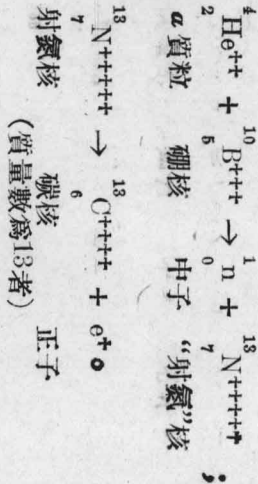 ⁴₂He⁺⁺ + ¹⁰₅B⁺⁺⁺ → ¹₀n + ¹³₇N⁺⁺⁺⁺⁺;
α質粒 硼核 中子 “射氮”核
¹³₇N⁺⁺⁺⁺⁺ → ¹³₆C⁺⁺⁺⁺ + e⁺。
射氮核 碳核 正子
(質量數爲13者)